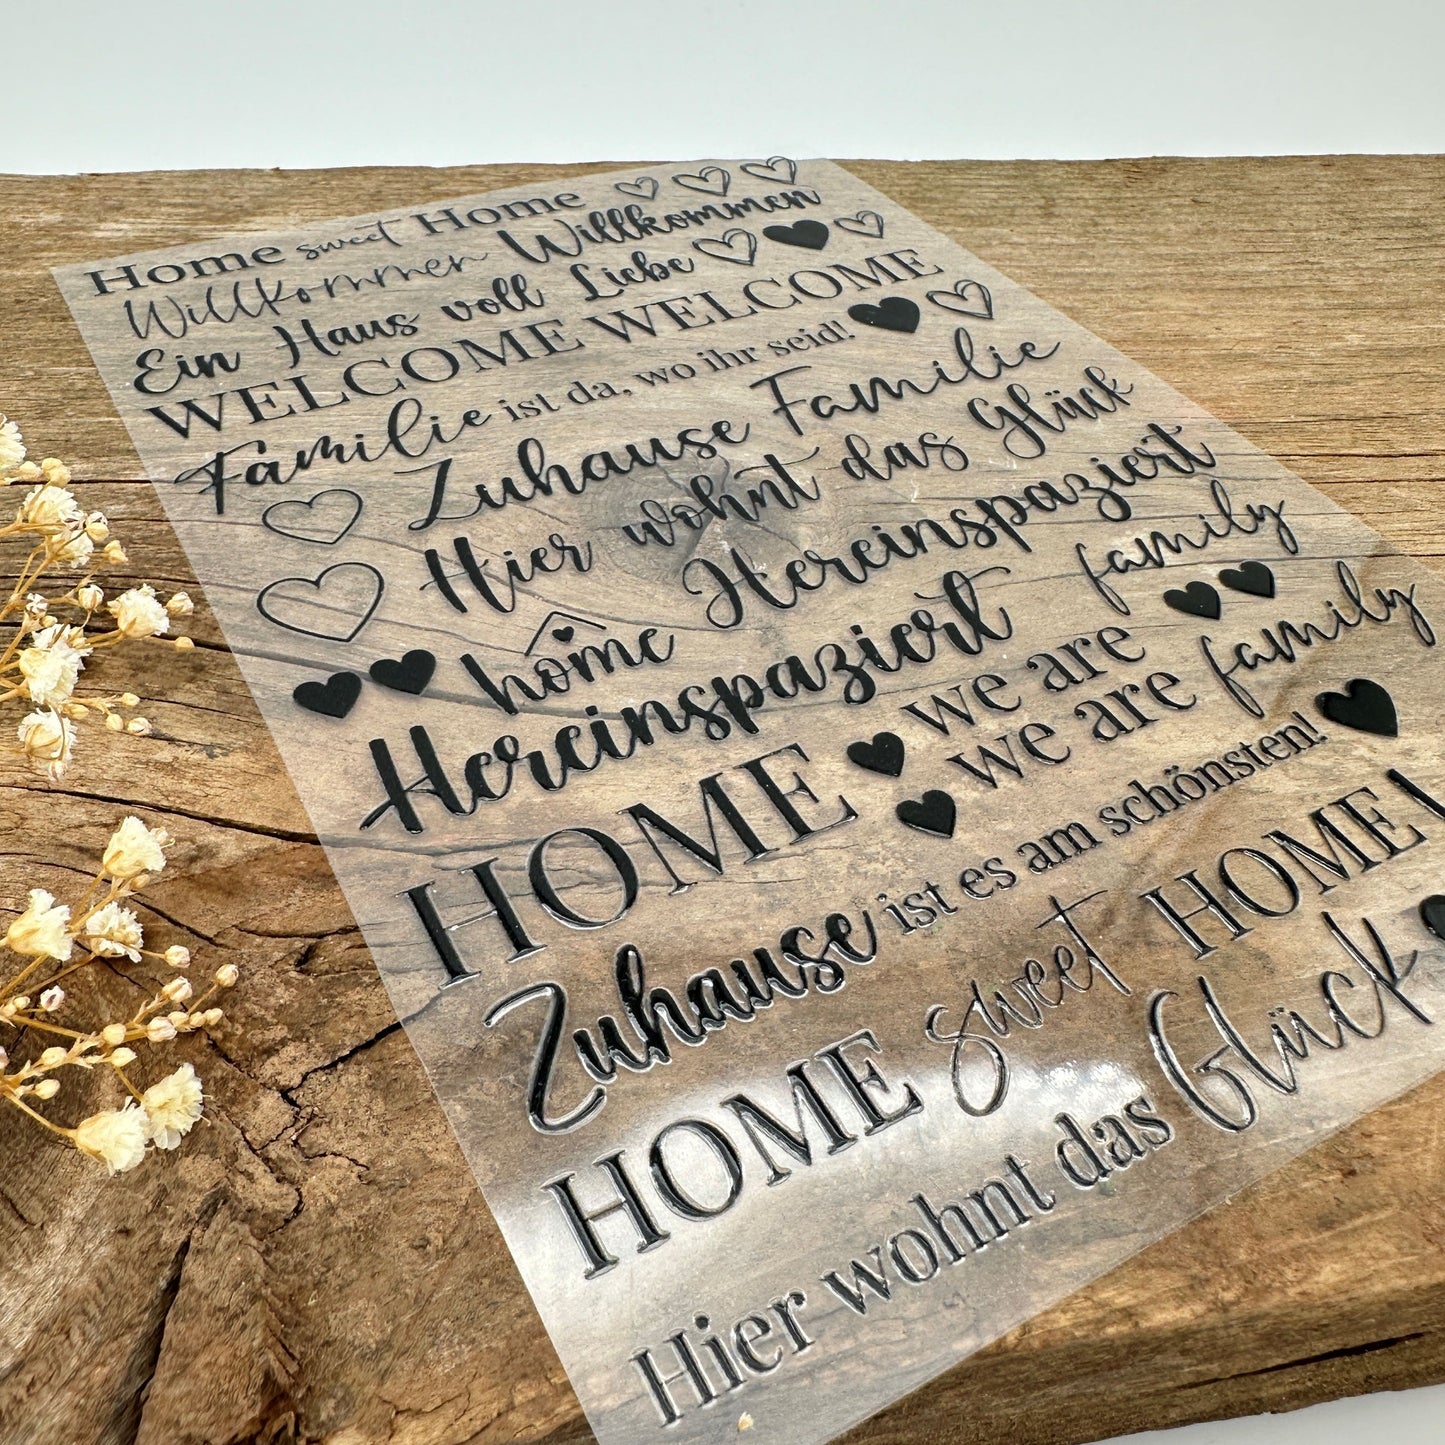 Home sweet Home
Willkommen Willkommen
Ein Haus voll Liebe
WELCOME WELCOME
Familie ist da, wo ihr seid!
Zuhause Familie
Hier wohnt das Glück
home Hereinspaziert
Hereinspaziert family
we are
HOME we are family
Zuhause ist es am schönsten!
HOME sweet HOME
Hier wohnt das Glück